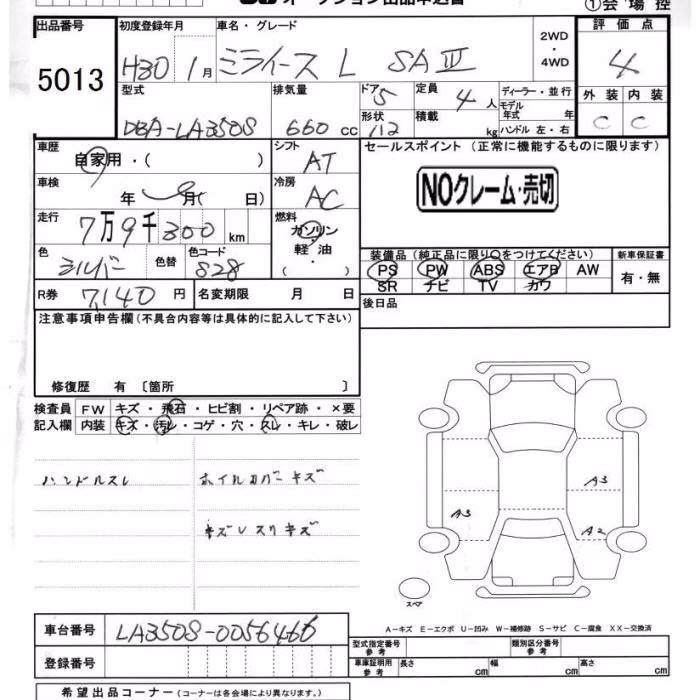 オークション出品申込書
①会場控
出品番号 初度登録年月 車名・グレード 2WD・4WD 評価点
5013 H30 1月 ミライース L SAⅢ 4
型式 排気量 ドア 5 定員 4人 ディーラー・並行 外装 内装
DBA-LA350S 660 cc 形状 積載 kg モデル年式 年 C C
ハンドル 左・右
車歴 シフト セールスポイント (正常に機能するものに限ります)
自家用・( ) AT
NOクレーム・売切
車検 冷房
年 月( 日) AC
走行 燃料
7万9千300 km ガソリン
軽・油
・( )
色 色替 色コード 装備品 (純正品に限り○をつけてください) 新車保証書
シルバー S28 PS PW ABS エアB AW 有・無
SR ナビ TV カワ
R券 7,140円 名変期限 月 日 後日品
注意事項申告欄 (不具合内容等は具体的に記入して下さい)
修復歴 有 〔箇所 〕
検査員 FW キズ・飛石・ヒビ割・リペア跡・×要
記入欄 内装 キズ・汚レ・コゲ・穴・スレ・キレ・破レ
ハンドルスレ ホイルカバーキズ
A3
A3
A2
スペア
A-キズ E-エクボ U-凹み W-補修跡 S-サビ C-腐食 XX-交換済
車台番号 LA350S-0056466
登録番号
型式指定番号 参考 類別区分番号 参考
車庫証明用 参考 長さ cm 幅 cm 高さ cm
希望出品コーナー (コーナーは各会場により異なります。)